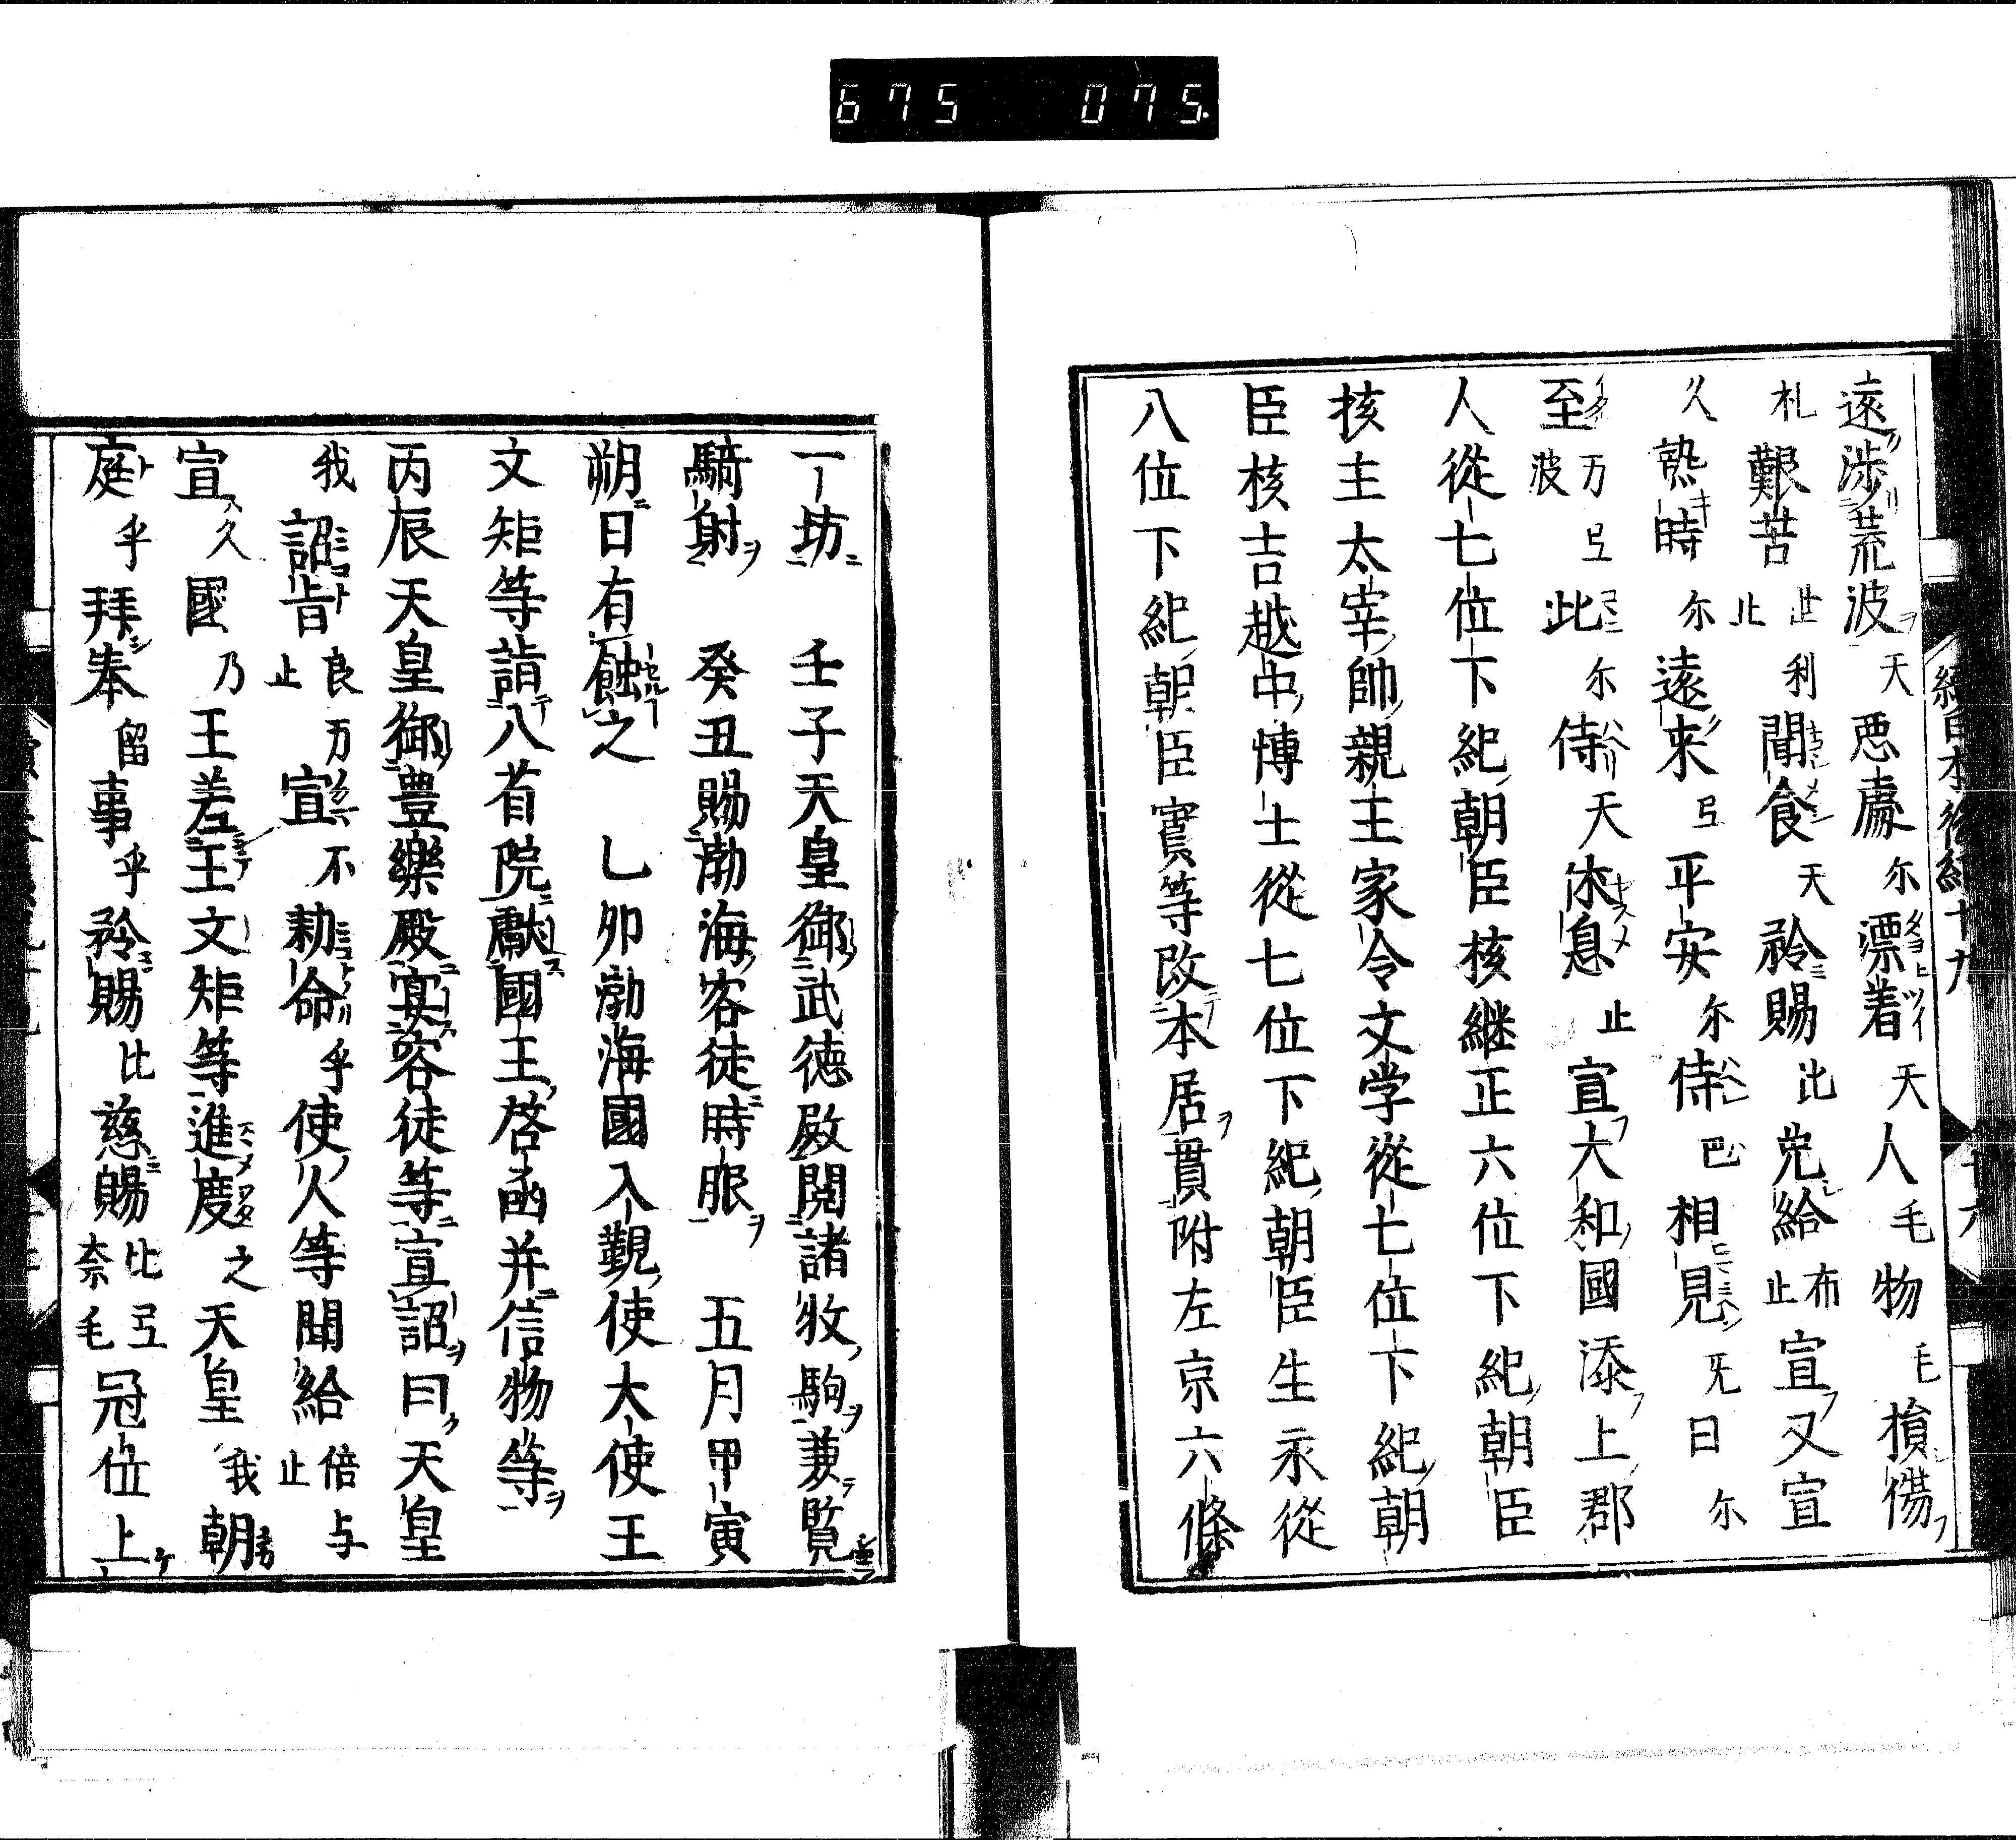 675 075.
遠渉荒波天悪處尓漂着天人毛物毛損傷
礼艱苦世利止聞食天矜賜比出㒵給布止宣又宣
久熱時尓遠来弖平安尓侍巴相見旡曰尓
至万弖波此尓侍天休息止宣大和國添上郡
人從七位下紀朝臣核継正六位下紀朝臣
核主太宰帥親王家令文学從七位下紀朝
臣核吉越中博士從七位下紀朝臣生永從
八位下紀朝臣實等改本居貫附左京六條
一坊 壬子天皇御武徳殿閲諸牧駒兼覧
騎射 癸丑賜渤海客徒時服 五月甲寅
朔日有蝕之 乙卯渤海國入覲使大使王
文矩等詣八省院獻國王啓函并信物等
丙辰天皇御豊樂殿宴客徒等宣詔曰天皇
我詔旨良万止宣不勅命乎使人等聞給倍与止
宣久國乃王差王文矩等進度之天皇我朝
庭乎拜奉留事乎矜賜比慈賜比弖奈毛冠位上